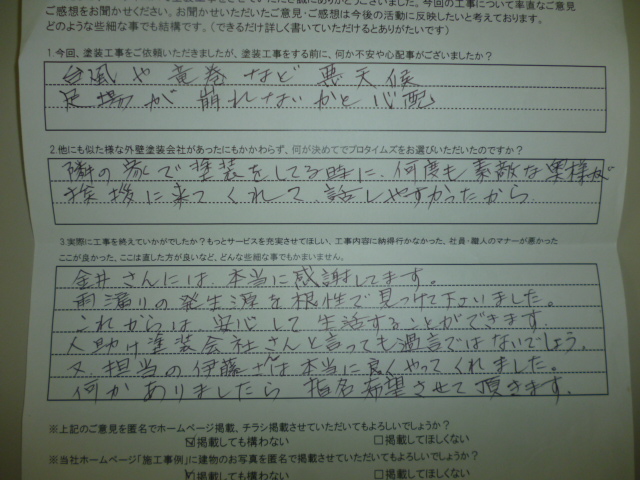 ご感想をお聞かせください。お聞かせいただいたご意見・ご感想は今後の活動に反映したいと考えております。
どのような些細な事でも結構です。（できるだけ詳しく書いていただけるとありがたいです）
1.今回、塗装工事をご依頼いただきましたが、塗装工事をする前に、何か不安や心配事がございましたか？
台風や竜巻など悪天候
足場が崩れないかと心配
2.他にも似た様な外壁塗装会社があったにもかかわらず、何が決めてでプロタイムズをお選びいただいたのですか？
隣の家で塗装をしてる時に、何度も素敵な奥様が
挨拶に来てくれて、話しやすかったから
3.実際に工事を終えていかがでしたか？もっとサービスを充実させてほしい、工事内容に納得行かなかった、社員・職人のマナーが悪かった
ここが良かった、ここは直した方が良いなど、どんな些細な事でもかまいません。
金井さんには、本当に感謝してます。
雨漏りの発生源を根性で見つけて下さいました。
これからは、安心して生活することができます。
人助け塗装会社さんと言っても過言ではないでしょう。
又、担当の伊藤さんは本当に良くやってくれました。
何かありましたら 指名希望させて頂きます。
※上記のご意見を匿名でホームページ掲載、チラシ掲載させていただいてもよろしいでしょうか？
☑掲載しても構わない □掲載してほしくない
※当社ホームページ「施工事例」に建物のお写真を匿名で掲載させていただいてもよろしいでしょうか？
☑掲載しても構わない □掲載してほしくない